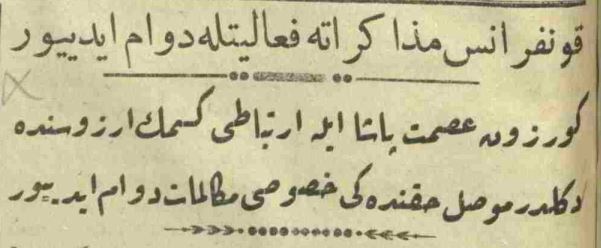 قونفرانس مذاكراته فعاليتله دوام ايدييور
كورزون عصمت پاشا ايله ارتباطى كسمك آرزوسنده
دكلدر موصل حقنده كى خصوصى مكالمات دوام ايدييور